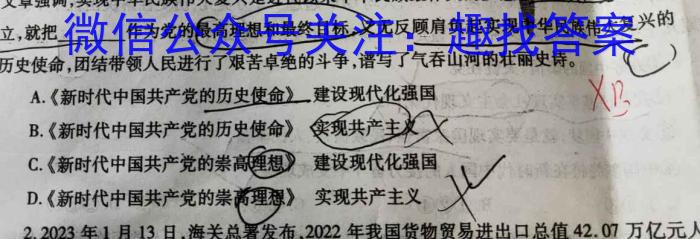 文章强调,实现中华民族伟大复兴是近代以来中华民族最
立,就把 作为党的最高理想和最终目标,义无反顾肩负起实现中华民族伟大复兴的
微信公众号关注：趣找答案
历史使命,团结带领人民进行了艰苦卓绝的斗争,谱写了气吞山河的壮丽史诗。 ( )
A.《新时代中国共产党的历史使命》 建设现代化强国
B.《新时代中国共产党的历史使命》 实现共产主义
C.《新时代中国共产党的崇高理想》 建设现代化强国
D.《新时代中国共产党的崇高理想》 实现共产主义
XB
2. 2023 年 1 月 13 日,海关总署发布,2022 年我国货物贸易进出口总值 42.07 万亿元